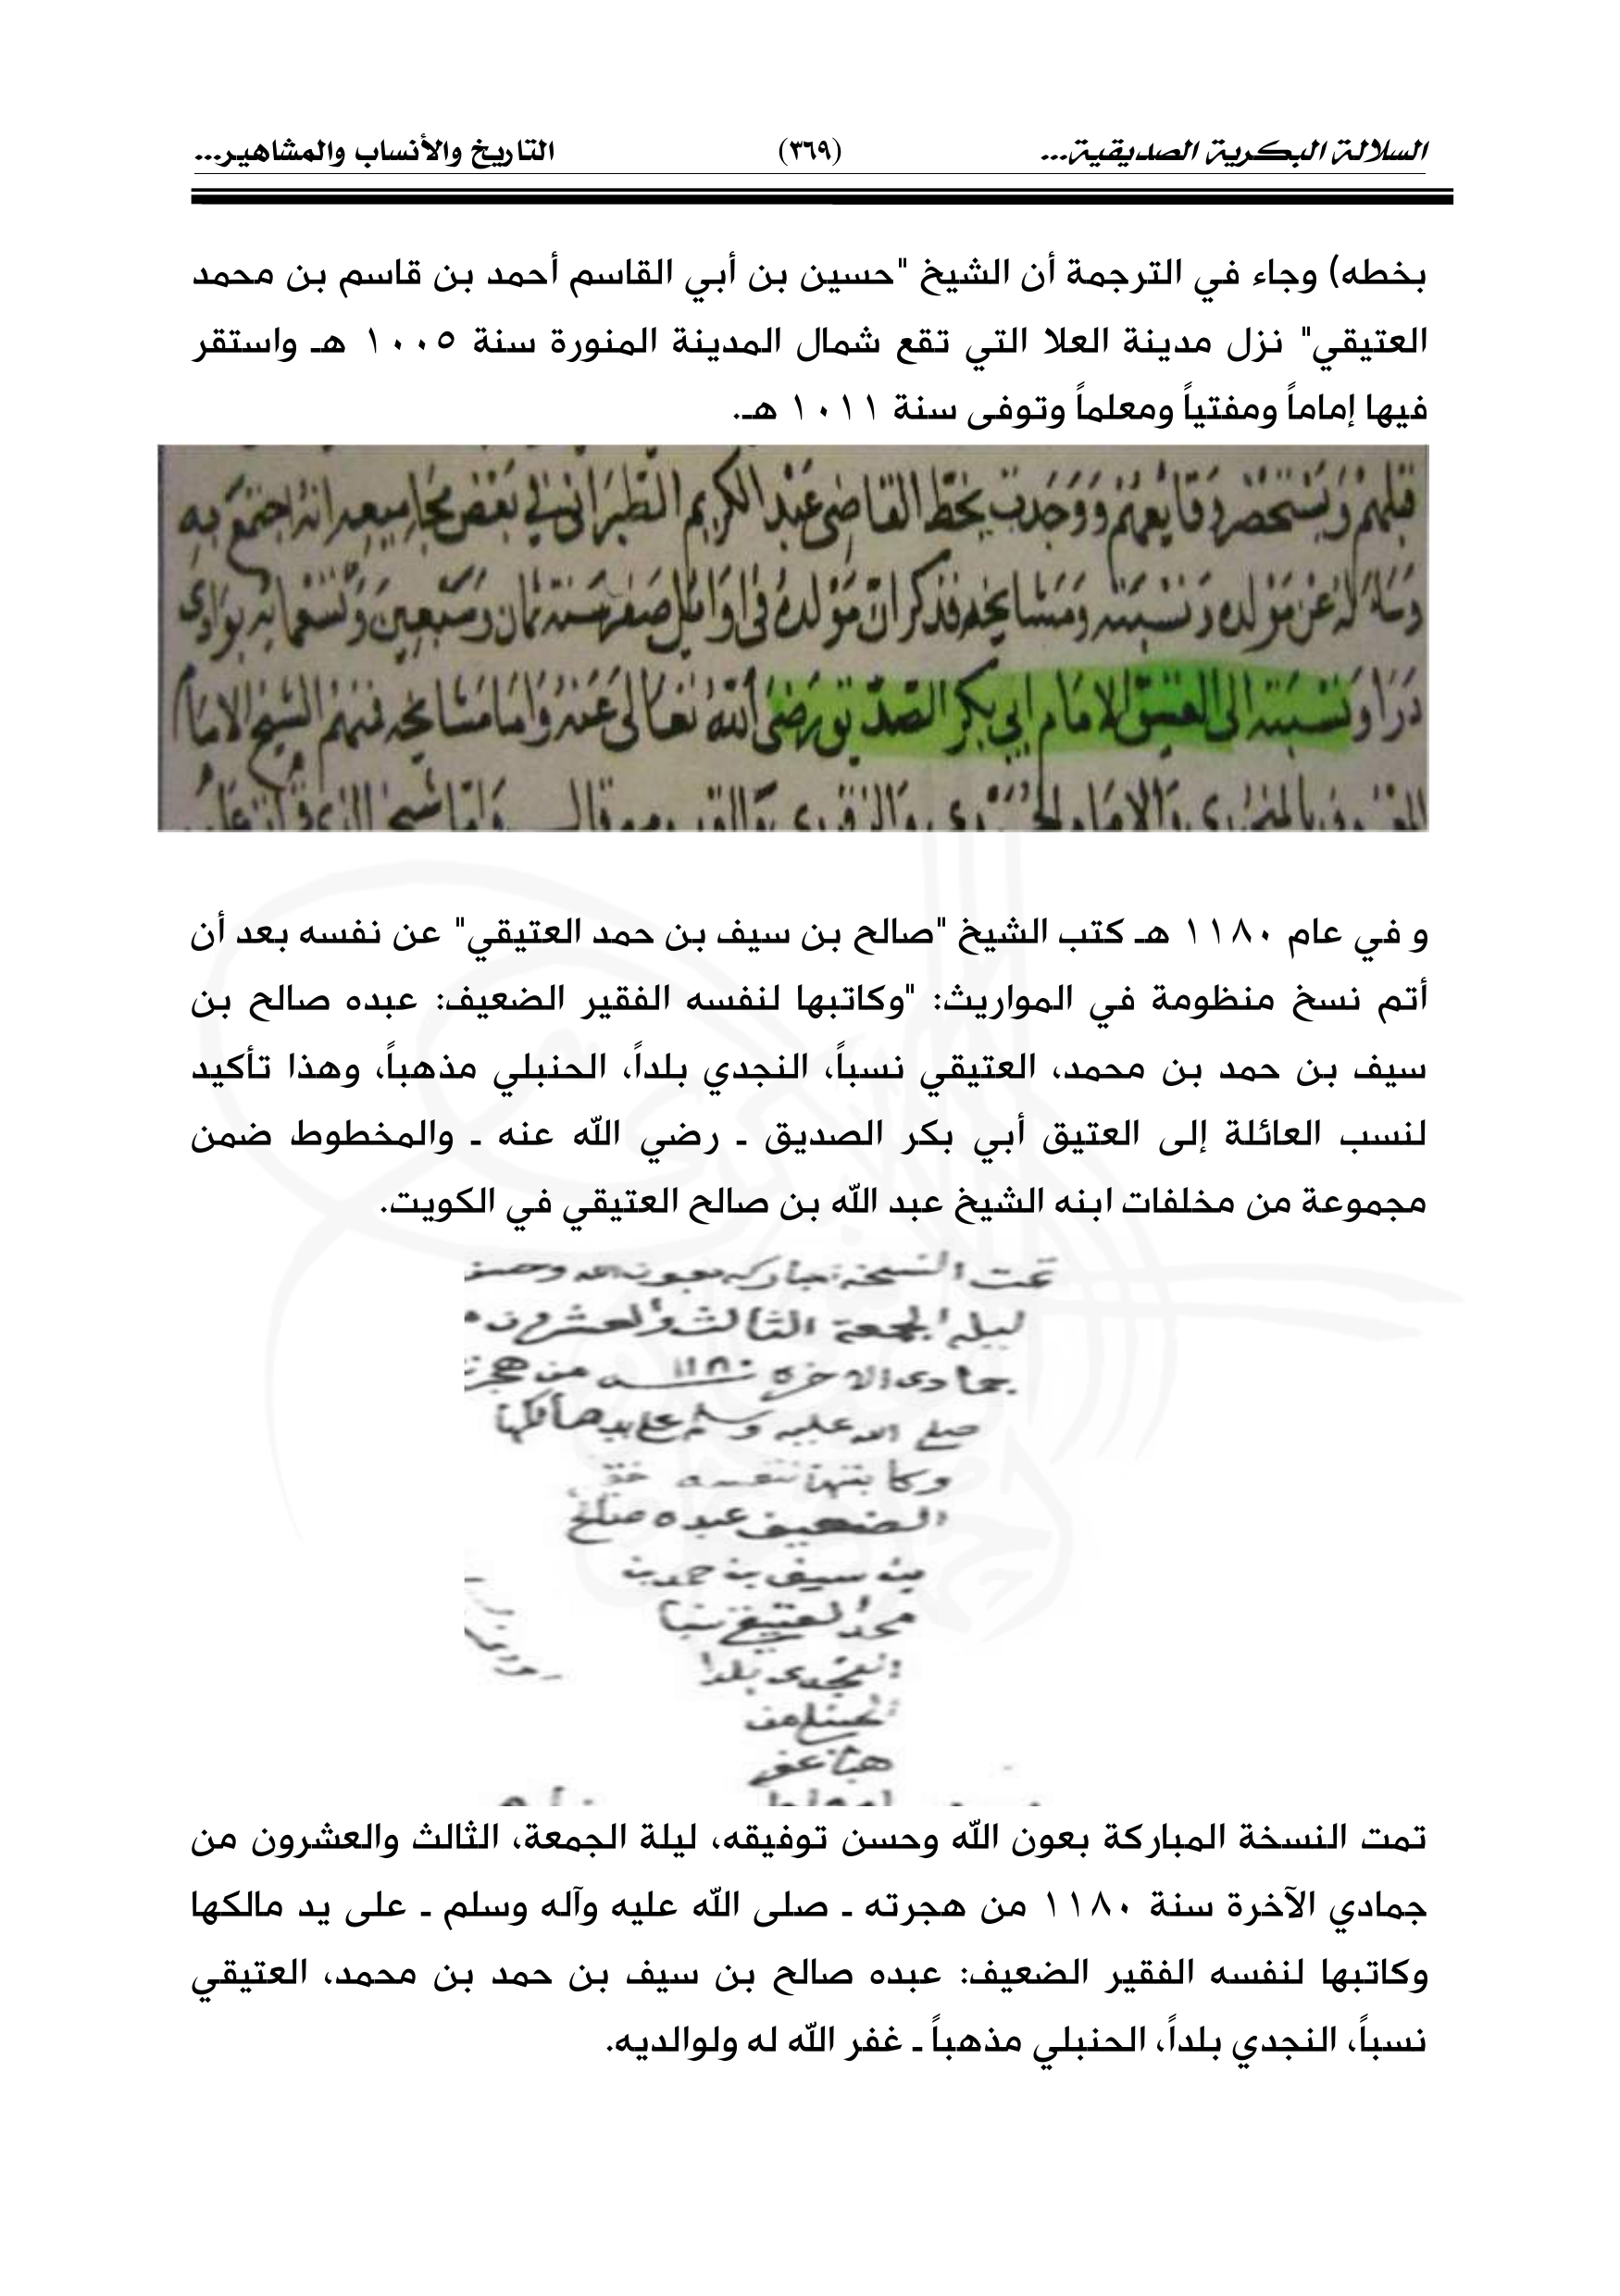 السلالة البكرية الصديقية... (٣٦٩) التاريخ والأنساب والمشاهير...
بخطه) وجاء في الترجمة أن الشيخ "حسين بن أبي القاسم أحمد بن قاسم بن محمد
العتيقي" نزل مدينة العلا التي تقع شمال المدينة المنورة سنة ١٠٠٥ هـ واستقر
فيها إماماً ومفتياً ومعلماً وتوفى سنة ١٠١١ هـ.
قبلهم ويستحضر وقايعهم ووجدت بخط القاضي عبد الكريم الطبراني في بعض مجاميعه انه اجتمع به
وساله عن مولده ونسبته ومشايخه فذكر ان مولده في اوايل صفر سنة ثمان وسبعين وتسعمائة بوادي
درا ونسبته الى العتيق الامام ابي بكر الصديق رضي الله تعالى عنه واما مشايخه فمنهم الشيخ الامام
و في عام ١١٨٠ هـ كتب الشيخ "صالح بن سيف بن حمد العتيقي" عن نفسه بعد أن
أتم نسخ منظومة في المواريث: "وكاتبها لنفسه الفقير الضعيف: عبده صالح بن
سيف بن حمد بن محمد، العتيقي نسباً، النجدي بلداً، الحنبلي مذهباً، وهذا تأكيد
لنسب العائلة إلى العتيق أبي بكر الصديق ـ رضي الله عنه ـ والمخطوط ضمن
مجموعة من مخلفات ابنه الشيخ عبد الله بن صالح العتيقي في الكويت.
تمت النسخة مباركه بعون الله وحسن
ليلة الجمعة الثالث والعشرون
جمادى الاخرة سنة ١١٨٠ من هجرته
صلى الله عليه وسلم على يد مالكها
وكاتبها لنفسه
الضعيف عبده صالح
بن سيف بن حمد بن
محمد العتيقي نسبا
النجدي بلدا
الحنبلي مذ
هبا غفر
تمت النسخة المباركة بعون الله وحسن توفيقه، ليلة الجمعة، الثالث والعشرون من
جمادي الآخرة سنة ١١٨٠ من هجرته ـ صلى الله عليه وآله وسلم ـ على يد مالكها
وكاتبها لنفسه الفقير الضعيف: عبده صالح بن سيف بن حمد بن محمد، العتيقي
نسباً، النجدي بلداً، الحنبلي مذهباً ـ غفر الله له ولوالديه.